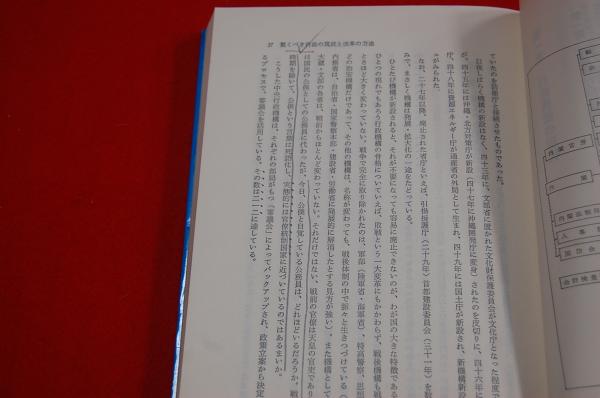 37 驚くべき行政の現状と改革の方途
ていたのを防衛庁と接続させたものであった。
以後しばらく機構の新設はなく、四十三年に、文部省に置かれた文化財保護委員会が文化庁となった程度で
四十五年には沖縄・北方対策庁が新設(四十七年に沖縄開発庁に変身)されたのを皮切りに、四十六年に
庁、四十八年に資源エネルギー庁が通産省の外局として生まれ、四十九年には国土庁が新設され、新機構新設
がみられた。
なお、二十七年以降、廃止された省庁といえば、引揚援護庁(二十九年)首都建設委員会(三十一年)を数
みで、まさしく機構は発展・拡大化の一途をたどっている。
ひとたび機構が新設されると、それが不要になっても容易に廃止できないのが、わが国の大きな特徴である
ひとつの現れでもあろう行政機構の骨格についていえば、敗戦という一大変革にもかかわらず、戦後機構も戦
ときほど大きく変わっていない。戦争で完全に取り除かれたのは、軍部(陸軍省・海軍省)、特高警察、思想
どの治安機構だけであって、その他の機構は、名称が変わっても、戦後体制の中で脈々と生きつづけている(
内務省は、自治省・国家警察本部・建設省・労働省に発展的に解消したとする見方が強い)。また機構として
大蔵・文部の各省は、戦前からほとんど変わっていない。それだけではない、戦前の官僚は天皇の官吏であり
は国民の公僕としての公務員に代わったが、今日、公僕と自覚している公務員は、どれほどいるだろうか。戦
時期を除いて、公僕という言葉は死語化し、実態的には官僚統制国家に近づいているのではあるまいか。
こうした中央行政機構は、それぞれの部局がもつ「審議会」によってバックアップされ、政策立案から決定
るプロセスで、審議会を活用している。その数は二一二に達している。
内閣官房
人事
国防会
会計検査